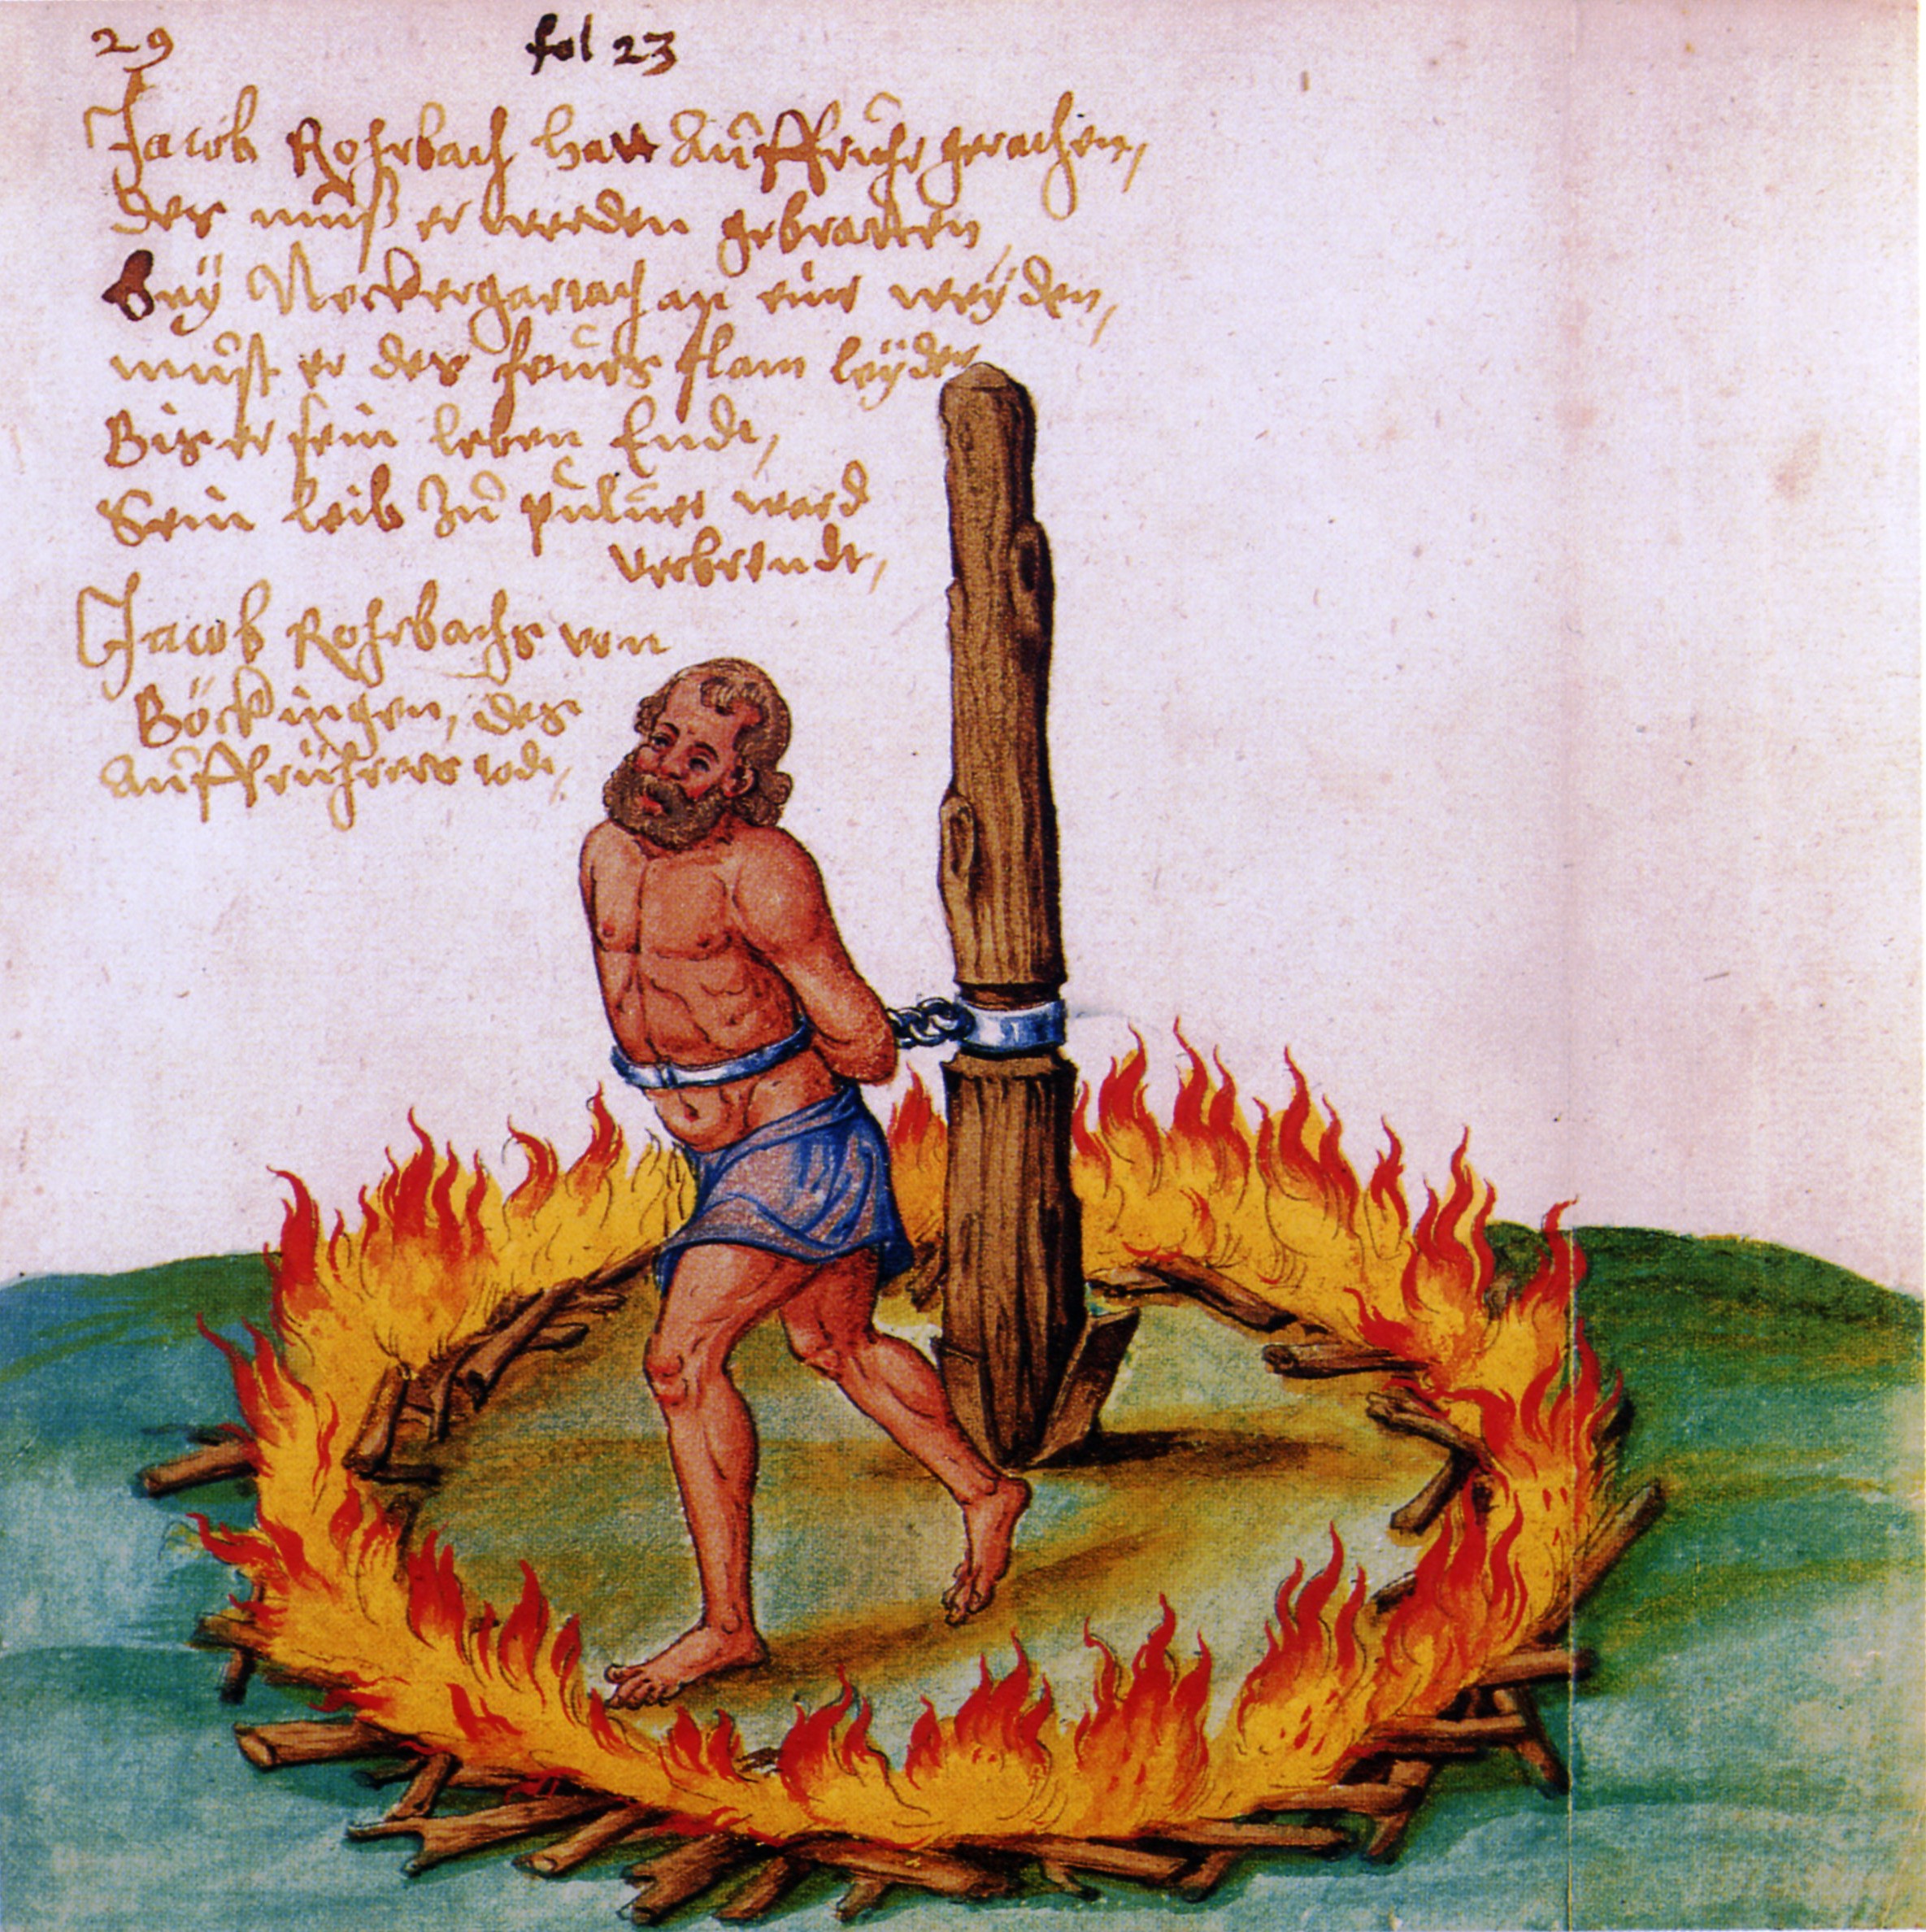 29 fol 23
Jacob Rohrbach hatt Auffruhr gerathen,
Des muß er werden gebratten
Bey Neckergartach an eine weÿden,
must er des feurs flam leÿden
Bis er sein leben Endt,
Sein leib zu puluer ward
verbrendt,
Jacob Rohrbachs von
Böckingen, des
Auffrührers todt,